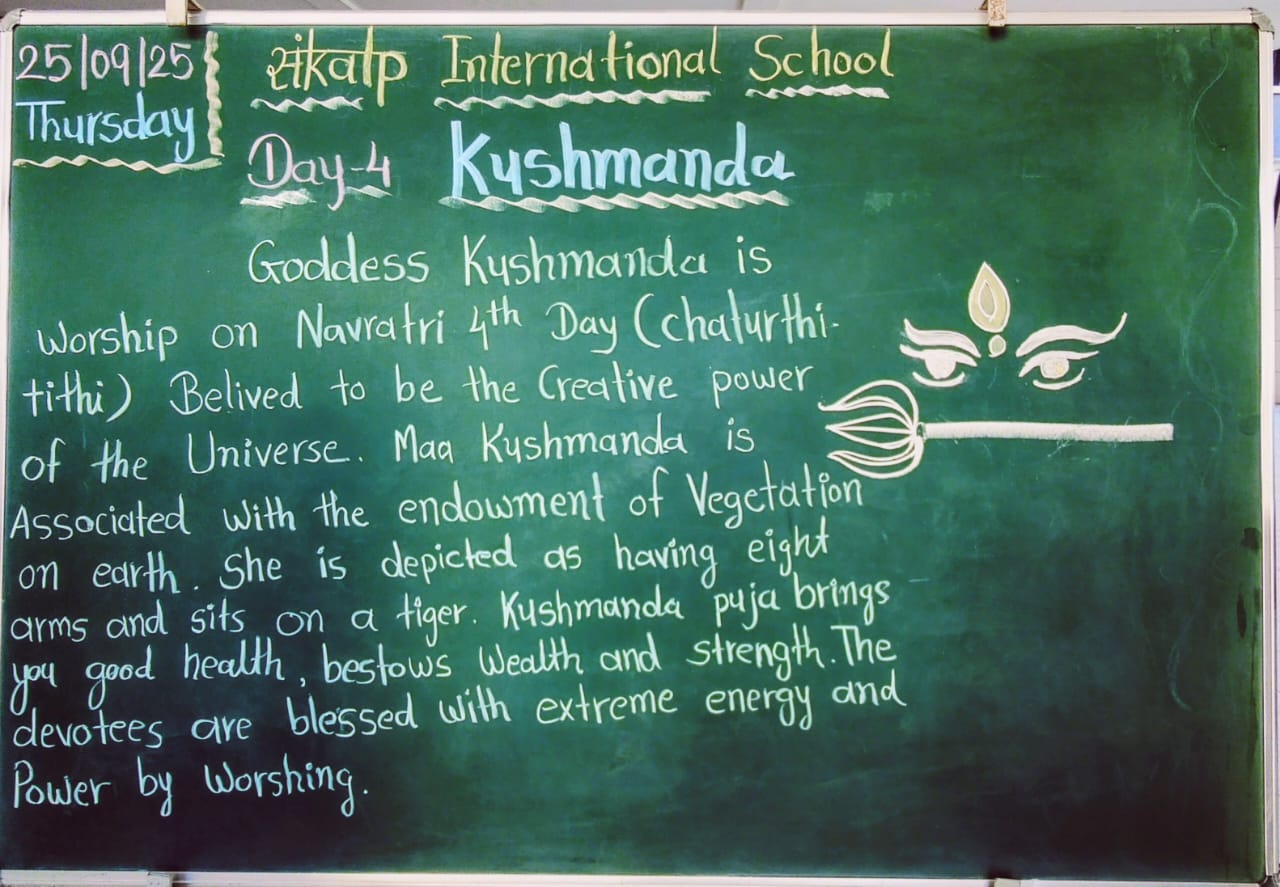 25/09/25
Thursday
संkalp International School
Day-4 Kushmanda
Goddess Kushmanda is
Worship on Navratri 4th Day (chaturthi-
tithi) Belived to be the Creative power
of the Universe. Maa Kushmanda is
Associated with the endowment of Vegetation
on earth. She is depicted as having eight
arms and sits on a tiger. Kushmanda puja brings
you good health, bestows Wealth and strength. The
devotees are blessed with extreme energy and
Power by Worshing.